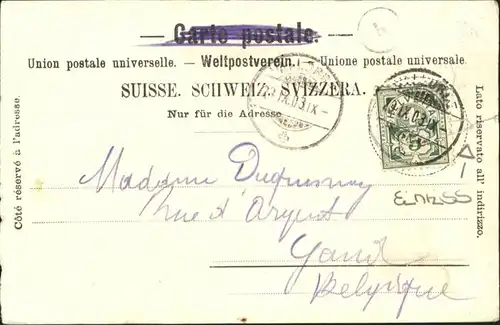 — Carte postale. —
Union postale universelle. — Weltpostverein. — Unione postale universale.
SUISSE. SCHWEIZ. SVIZZERA.
Nur für die Adresse
Côté réservé à l'adresse.
Lato riservato all' indirizzo.
Madame Duquesnoy
Rue d'Argent
Gand
Belgique